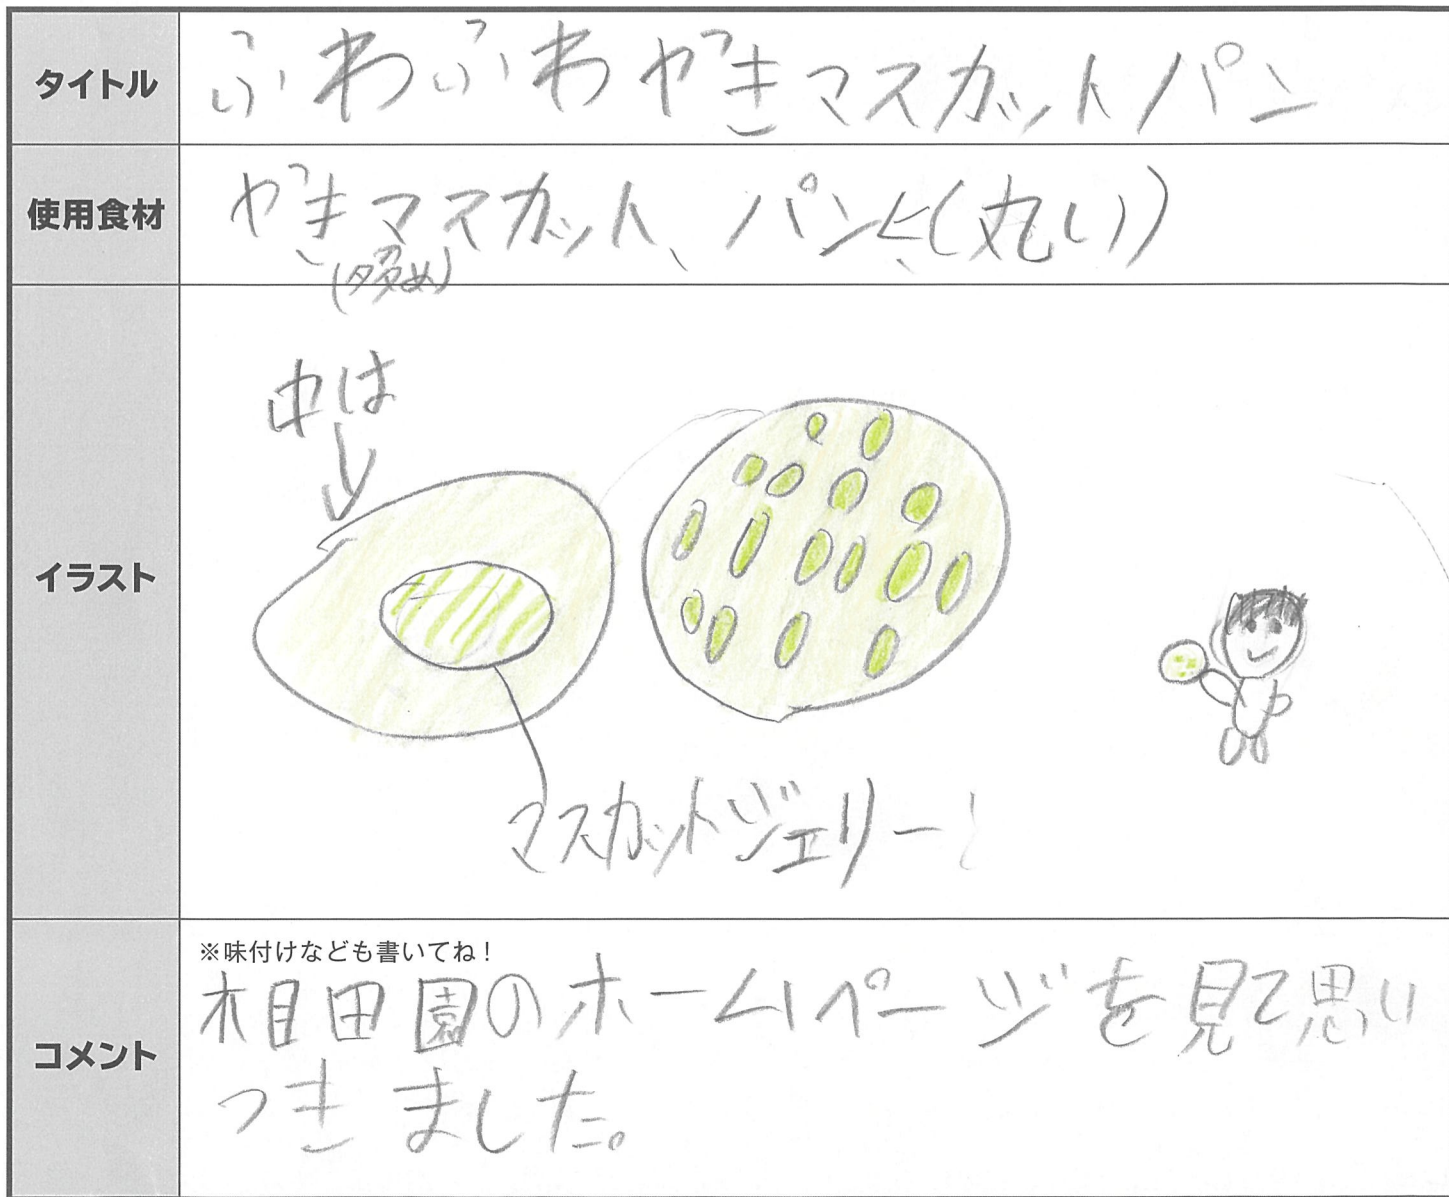 タイトル
ふわふわやきマスカットパン
使用食材
やきマスカット、パン(丸い)
(多め)
イラスト
中は
マスカットジェリー
コメント
※味付けなども書いてね!
相田園のホームページを見て思い
つきました。